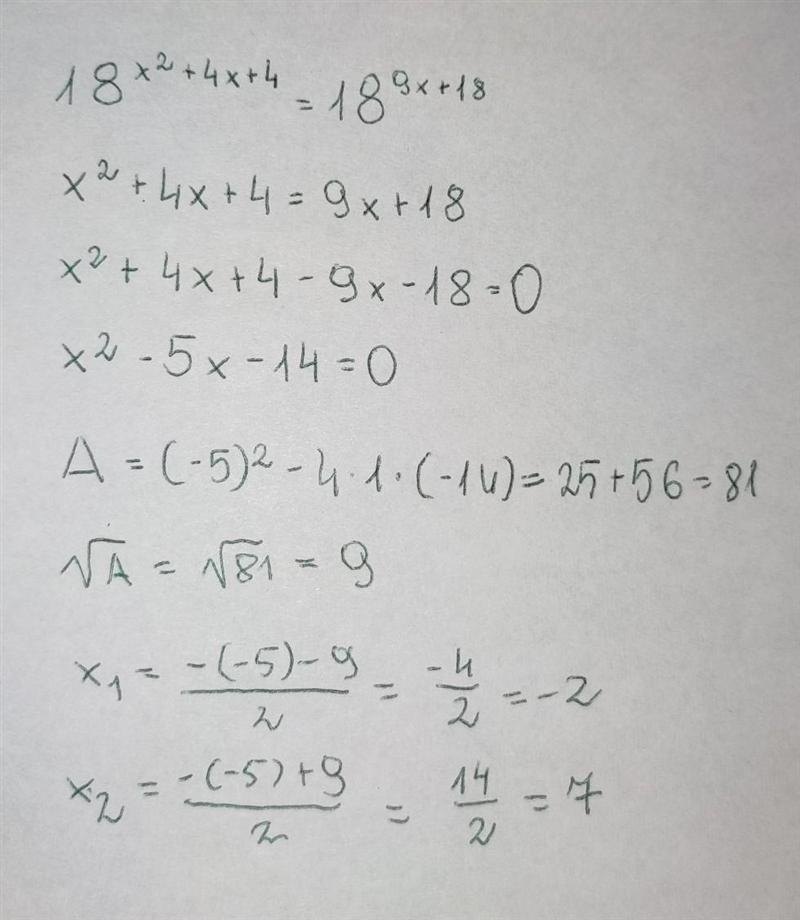 18^(x² + 4x + 4) = 18^(9x + 18)
x² + 4x + 4 = 9x + 18
x² + 4x + 4 - 9x - 18 = 0
x² - 5x - 14 = 0
Δ = (-5)² - 4 · 1 · (-14) = 25 + 56 = 81
√Δ = √81 = 9
x₁ = (-(-5) - 9)/2 = -4/2 = -2
x₂ = (-(-5) + 9)/2 = 14/2 = 7